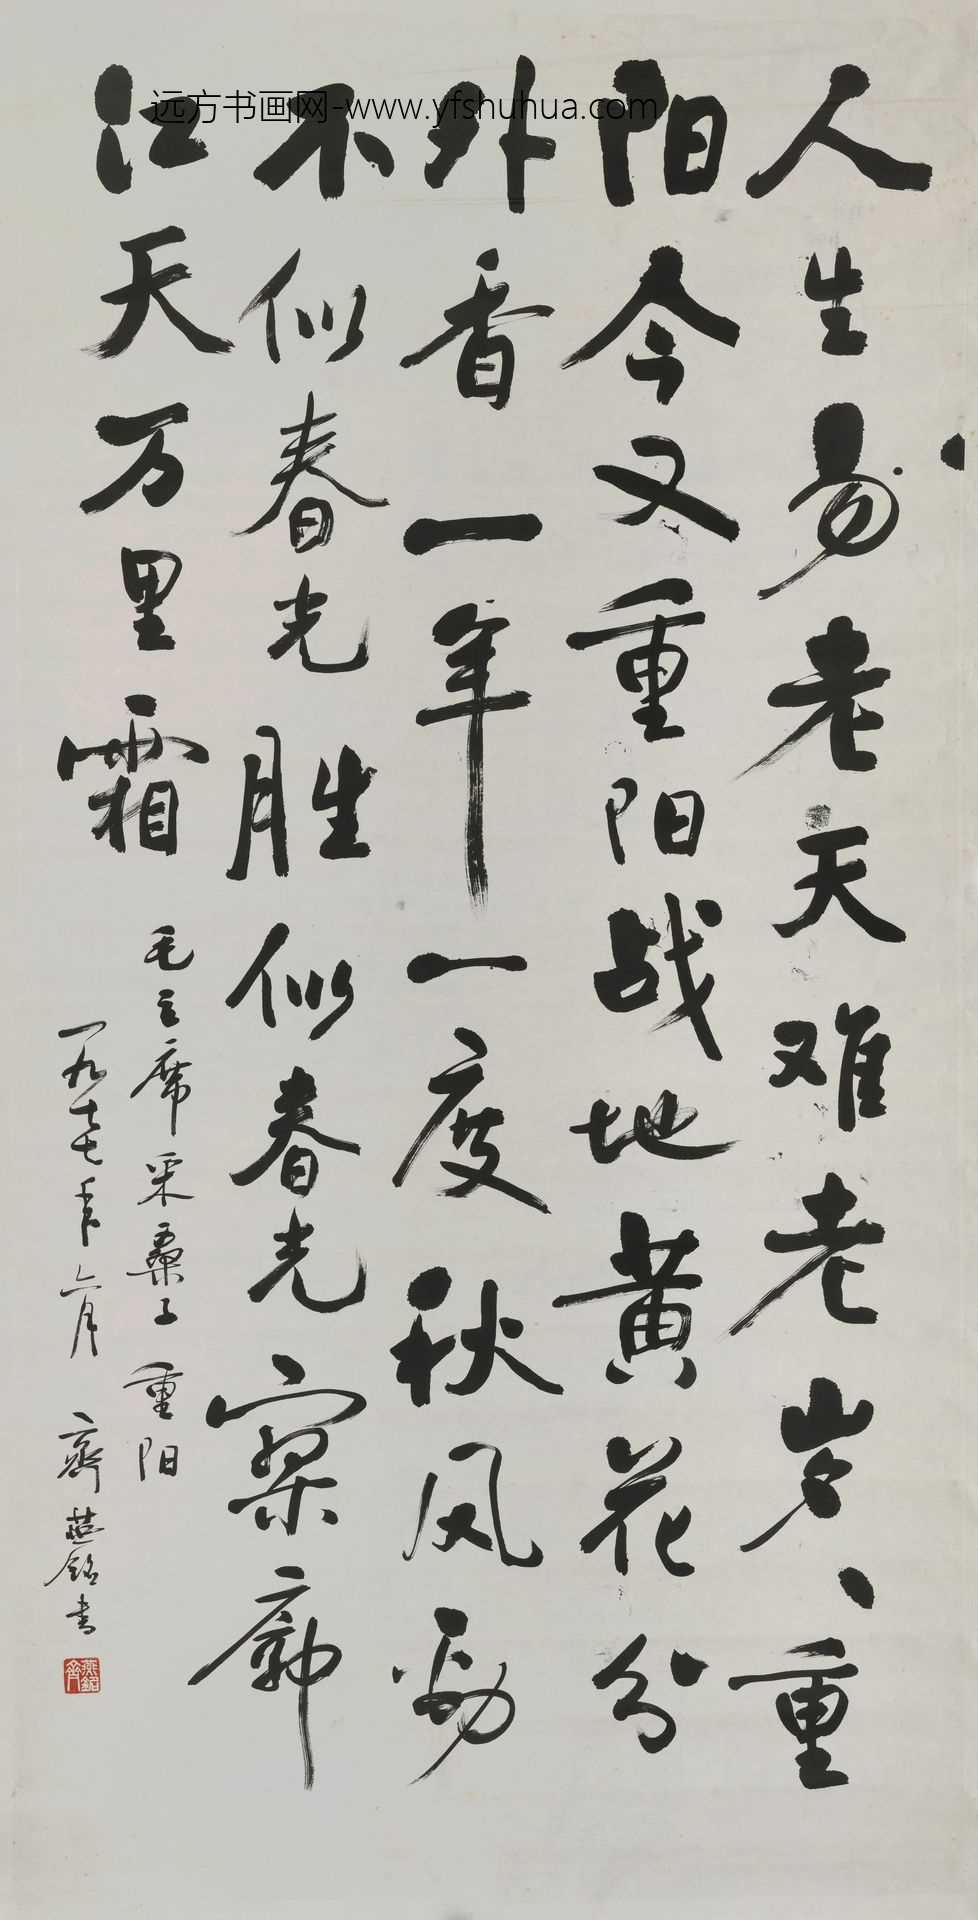 远方书画网-www.yfshuhua.com
人生易老天难老岁、重
阳今又重阳战地黄花分
外香一年一度秋风劲
不似春光胜似春光寥廓
江天万里霜
毛主席采桑子 重阳
一九七七年六月 齊燕铭书
燕銘
齊